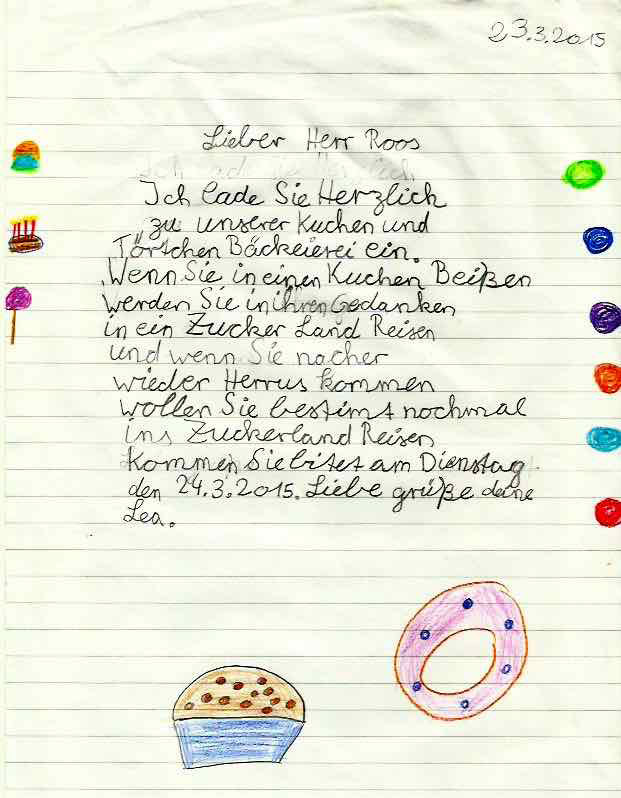 23.3.2015
Lieber Herr Roos
Ich lade Sie Herzlich
zu unserer Kuchen und
Törtchen Bäckeierei ein.
Wenn Sie in einen Kuchen Beißen
werden Sie in ihren Gedanken
in ein Zucker Land Reisen
und wenn Sie nacher
wieder Herrus kommen
wollen Sie bestimt nochmal
ins Zuckerland Reisen
Kommen Sie bitet am Dienstag
den 24.3.2015. Liebe grüße deine
Lea.